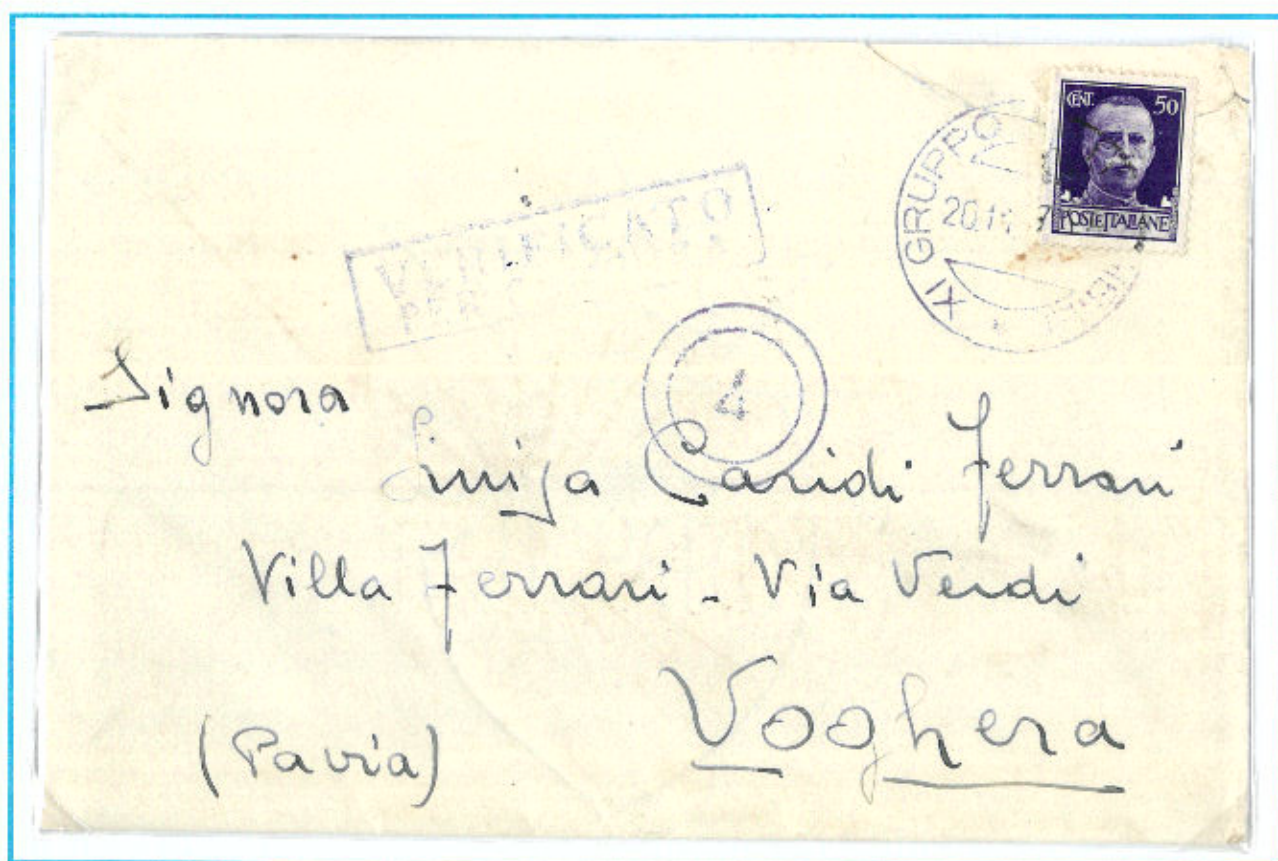 CENT. 50
POSTE ITALIANE
XI GRUPPO
20.11
VERIFICATO
PER
4
Signora
Luisa Caridi Ferrari
Villa Ferrari - Via Verdi
Voghera
(Pavia)